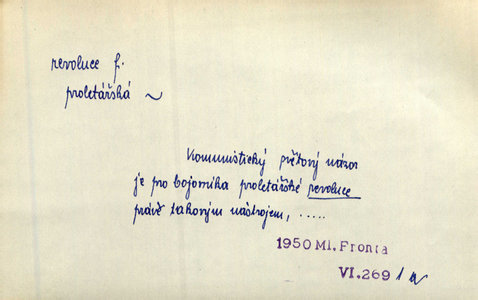 revoluce f.
proletářská ~
Komunistický světový názor
je pro bojovníka proletářské revoluce
právě takovým nástrojem, .....
1950 Ml. Fronta
VI. 269